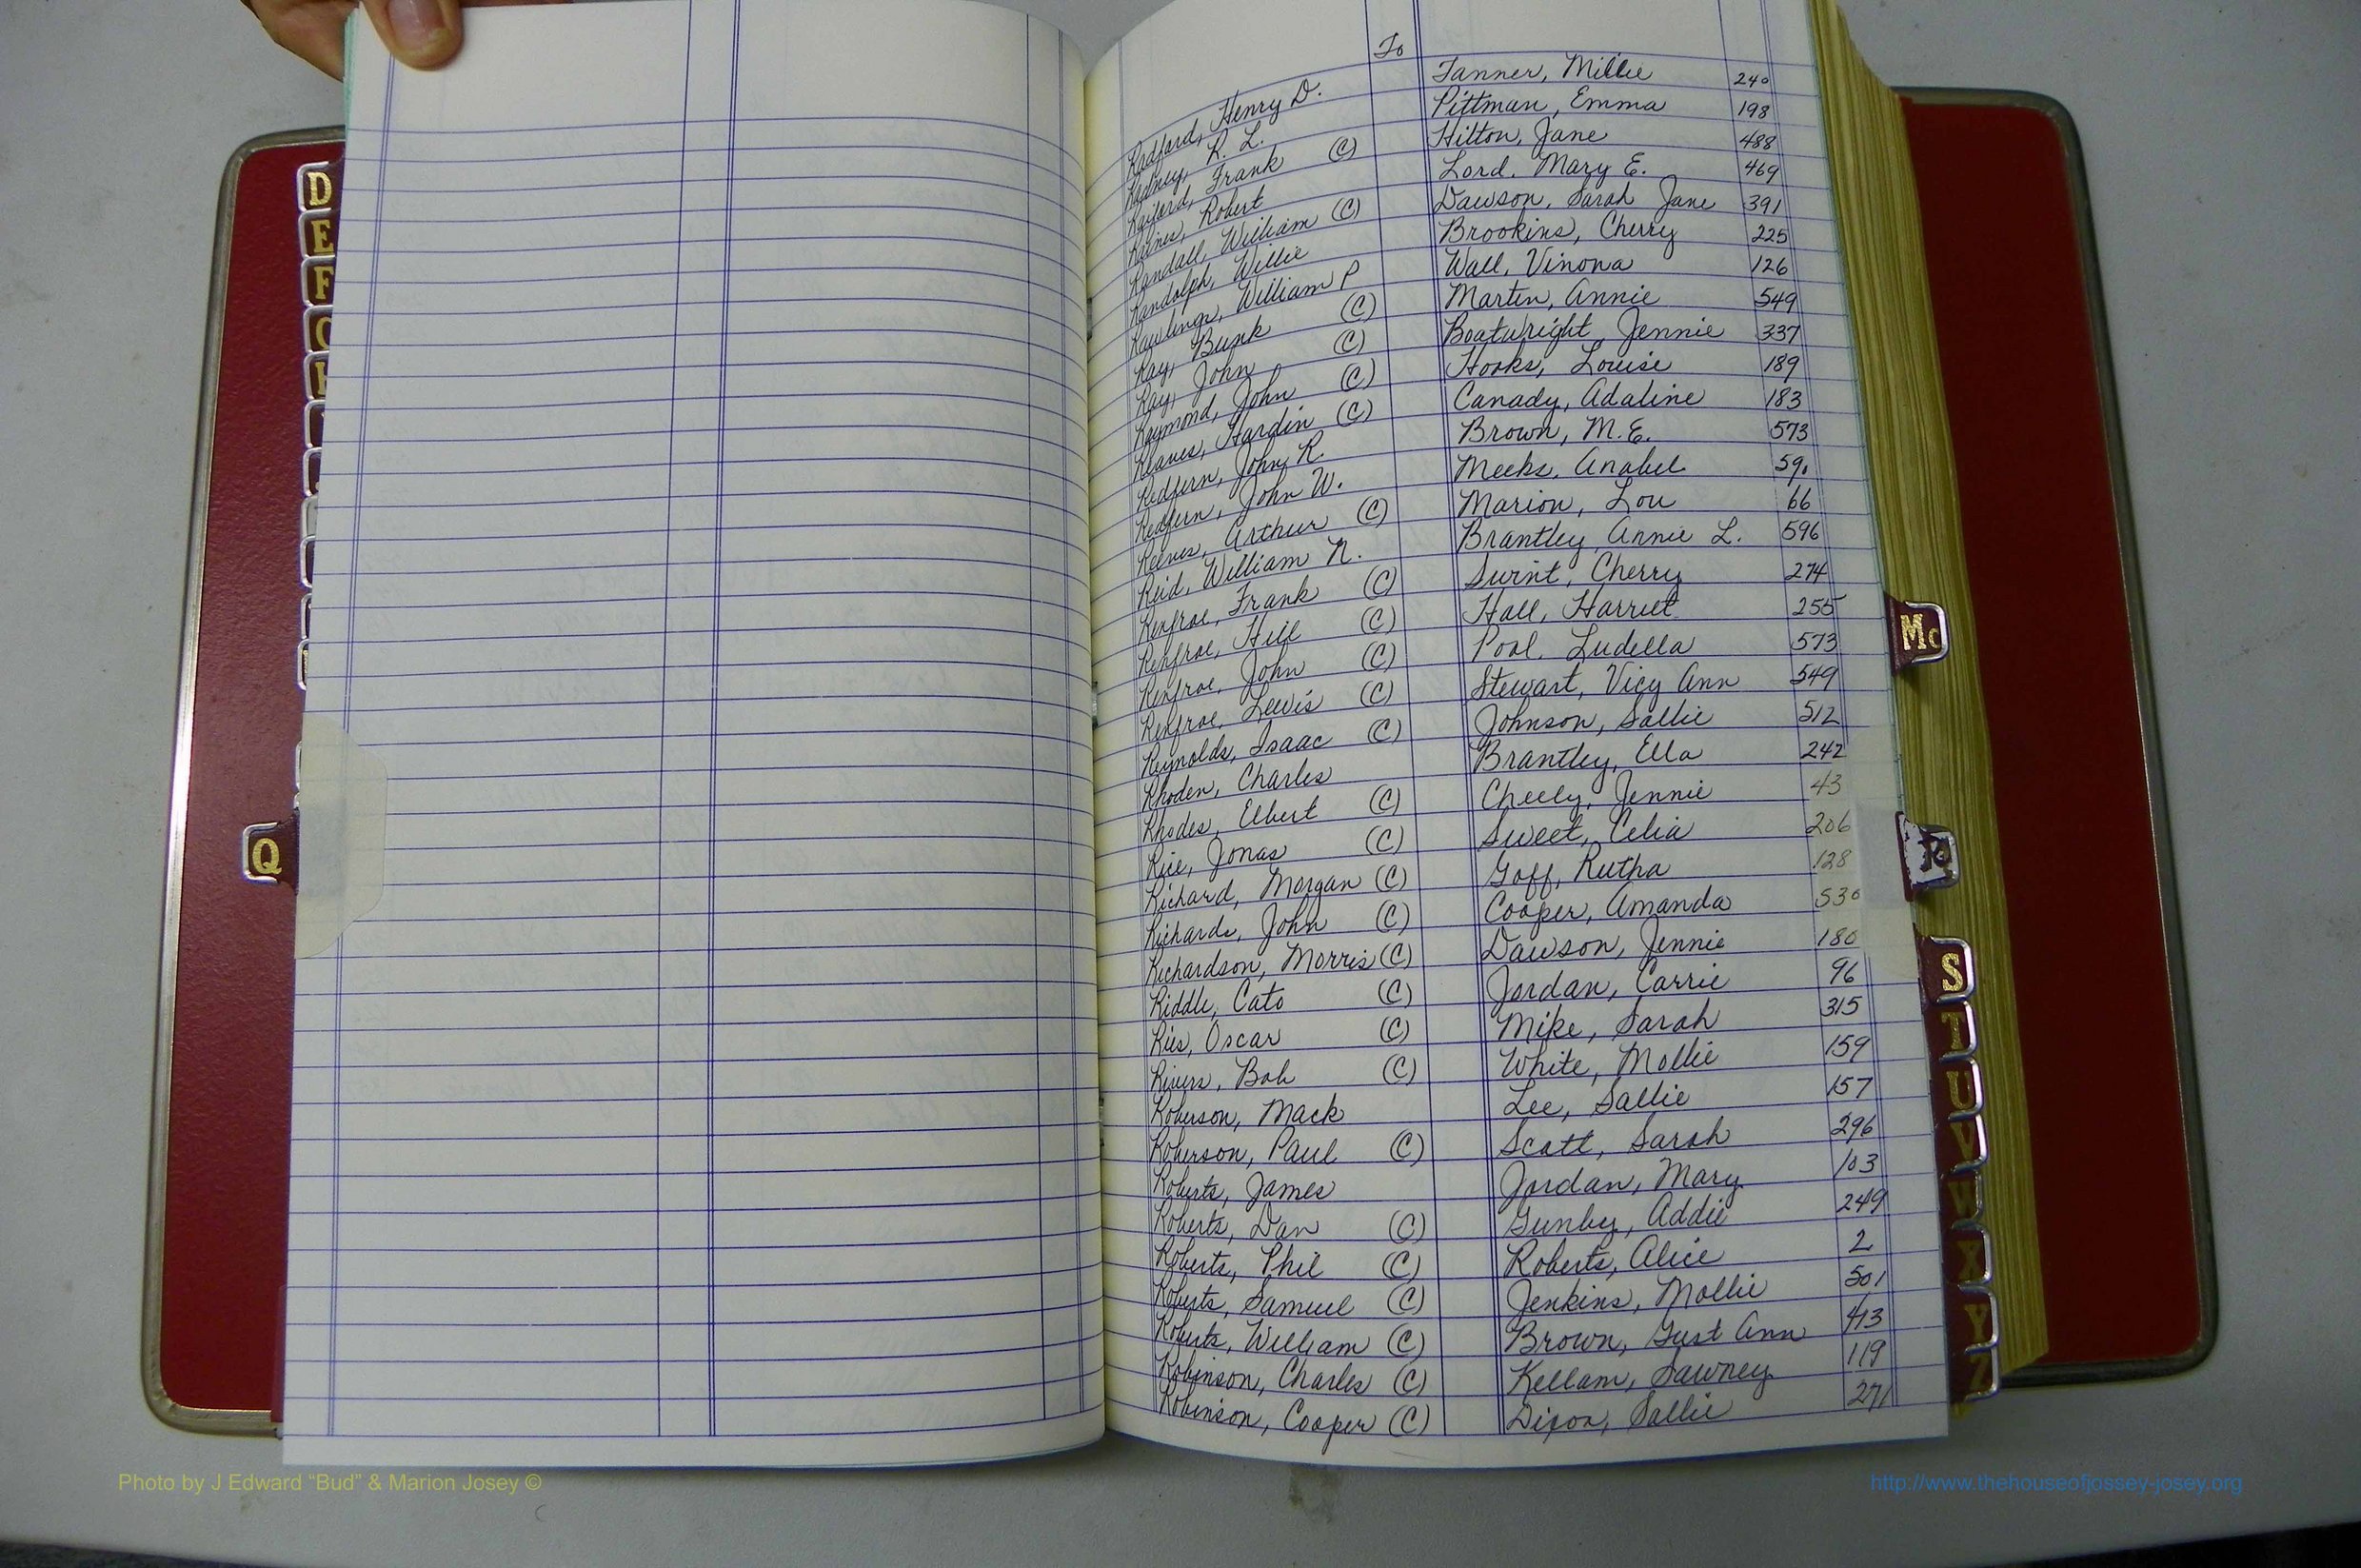 To
Radford, Henry D. Tanner, Millie 240
Radney, R. L. Pittman, Emma 198
Raiford, Frank (C) Hilton, Jane 488
Raines, Robert Lord, Mary E. 469
Randall, William (C) Dawson, Sarah Jane 391
Randolph, Willie Brookins, Cherry 225
Rawlings, William P Wall, Vinona 126
Ray, Bunk (C) Martin, Annie 549
Ray, John (C) Boatwright, Jennie 337
Raymond, John (C) Hooks, Louise 189
Reaves, Hardin (C) Canady, Adaline 183
Redfern, John R. Brown, M.E. 573
Redfern, John W. Meeks, Anabel 591
Reeves, Arthur (C) Marion, Lou 66
Reid, William N. Brantley, Annie L. 596
Renfroe, Frank (C) Surnt, Cherry 274
Renfroe, Hill (C) Hall, Harriet 255
Renfroe, John (C) Pool, Ludella 573
Renfroe, Lewis (C) Stewart, Vicy Ann 549
Reynolds, Isaac (C) Johnson, Sallie 512
Rhoden, Charles Brantley, Ella 242
Rhodes, Elbert (C) Cheely, Jennie 43
Rice, Jonas (C) Sweet, Celia 206
Richard, Morgan (C) Goff, Rutha 128
Richards, John (C) Cooper, Amanda 530
Richardson, Morris (C) Dawson, Jennie 180
Riddle, Cato (C) Jordan, Carrie 96
Ries, Oscar (C) Mike, Sarah 315
Rivers, Bob (C) White, Mollie 159
Roberson, Mack Lee, Sallie 157
Roberson, Paul (C) Scott, Sarah 296
Roberts, James Jordan, Mary 103
Roberts, Dan (C) Gunby, Addie 249
Roberts, Phil (C) Roberts, Alice 2
Roberts, Samuel (C) Jenkins, Mollie 501
Roberts, William (C) Brown, Gust Ann 413
Robinson, Charles (C) Kellam, Sawney 119
Robinson, Cooper (C) Dixon, Sallie 271
D
E
F
Q
Mc
R
S
T
U
V
W
X
Y
Z
Photo by J Edward “Bud” & Marion Josey ©
http://www.thehouseofjossey-josey.org